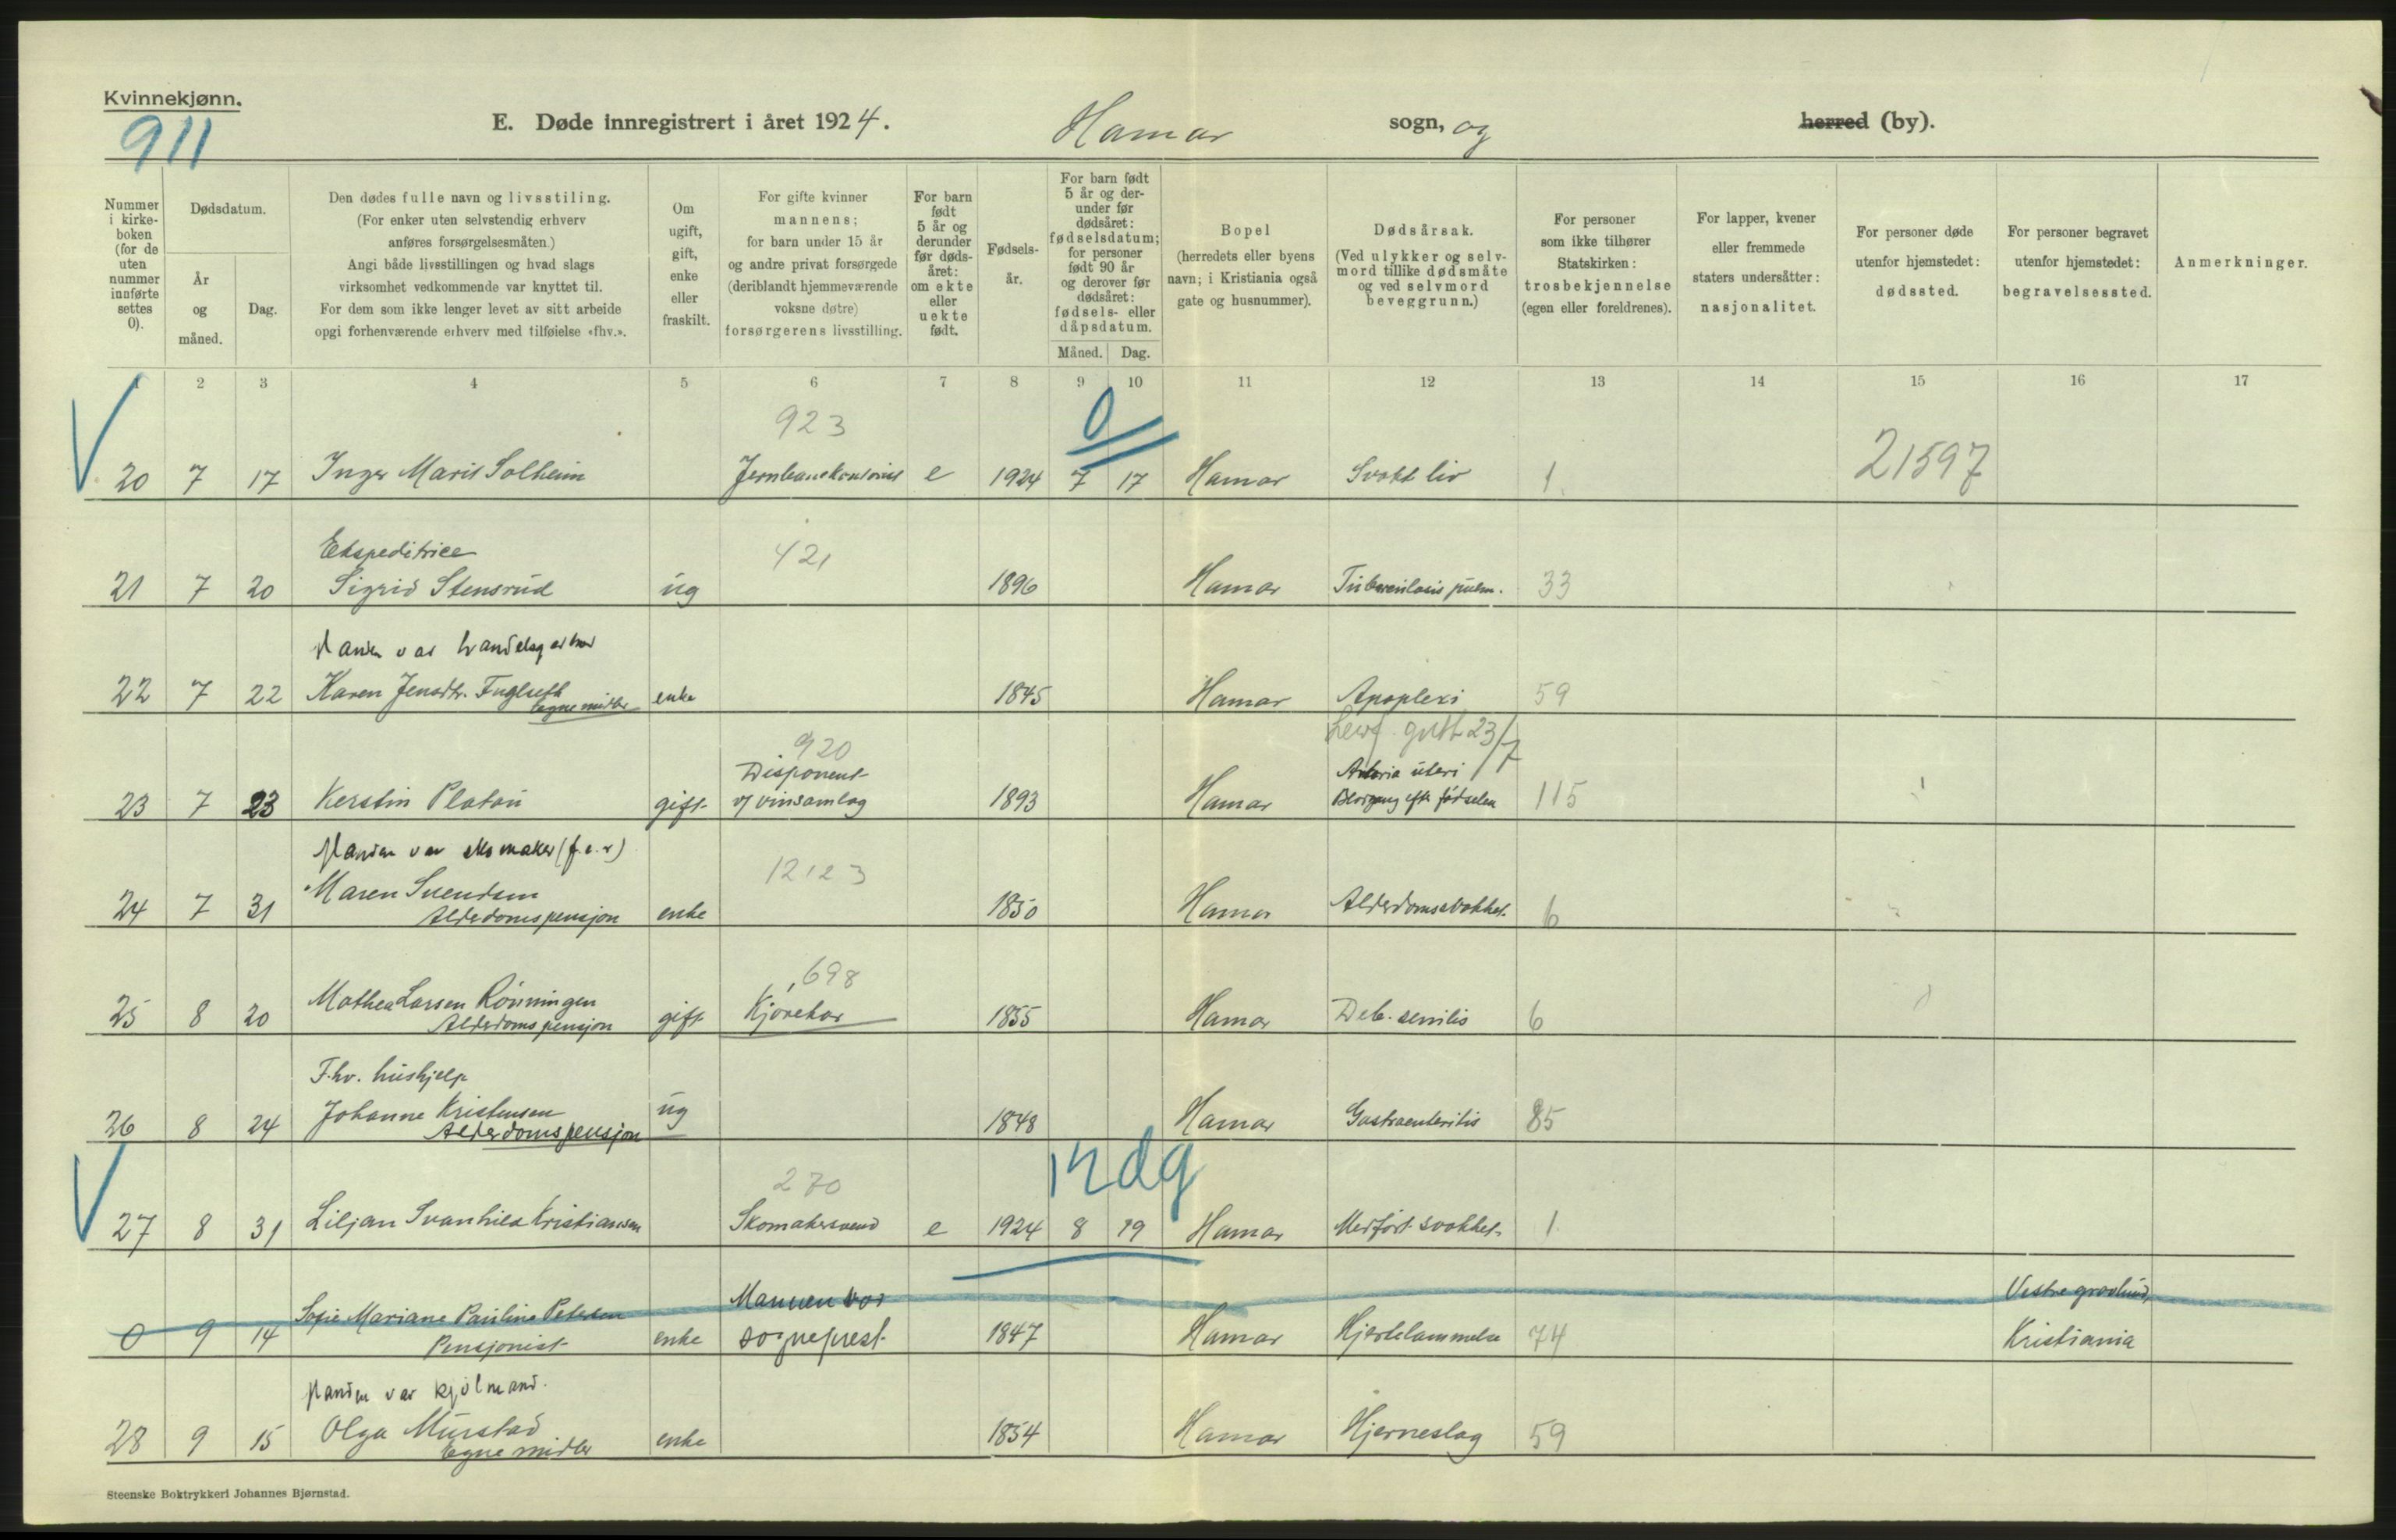 Kvinnekjønn.
911
E. Døde innregistrert i året 1924. Hamar sogn, og herred (by).
Nummer i kirkeboken (for de uten nummer innførte settes 0).
Dødsdatum.
År og måned.
Dag.
Den dødes fulle navn og livsstilling.
(For enker uten selvstendig erhverv
anføres forsørgelsesmåten.)
Angi både livsstillingen og hvad slags
virksomhet vedkommende var knyttet til.
For dem som ikke lenger levet av sitt arbeide
opgi forhenværende erhverv med tilføielse «fhv.».
Om ugift, gift, enke eller fraskilt.
For gifte kvinner
mannens;
for barn under 15 år
og andre privat forsørgede
(deriblandt hjemmeværende
voksne døtre)
forsørgerens livsstilling.
For barn født 5 år og derunder før dødsåret: om ekte eller uekte født.
Fødselsår.
For barn født 5 år og derunder før dødsåret: fødselsdatum; for personer født 90 år og derover før dødsåret: fødsels- eller dåpsdatum.
Måned. Dag.
Bopel
(herredets eller byens
navn; i Kristiania også
gate og husnummer).
Dødsårsak.
(Ved ulykker og selvmord tillike dødsmåte
og ved selvmord
beveggrunn.)
For personer
som ikke tilhører
Statskirken:
trosbekjennelse
(egen eller foreldrenes).
For lapper, kvener
eller fremmede
staters undersåtter:
nasjonalitet.
For personer døde
utenfor hjemstedet:
dødssted.
For personer begravet
utenfor hjemstedet:
begravelsessted.
Anmerkninger.
1 2 3 4 5 6 7 8 9 10 11 12 13 14 15 16 17
923 0
20 7 17 Inger Marit Solheim Jernbanekontorist e 1924 7 17 Hamar Svakt liv 1. 21597
Ekspeditrice 421
21 7 20 Sigrid Stensrud ug 1896 Hamar Tuberculosis pulm. 33
Manden var handelsgartner
22 7 22 Karen Jensdtr. Fuglseth enke 1845 Hamar Apoplexi 59
Egne midler
920 23/7
Disponent
23 7 23 Kerstin Platou gift v/ vinsamlag 1893 Hamar Blødning efter fødselen 115
Manden var skomaker (f.e.r)
12123
24 7 31 Maren Svendsen enke 1850 Hamar Alderdomssvakhet. 6
Alderdomspensjon
698
25 8 20 Mathea Larsen Rønningen gift Kjørekar 1855 Hamar Deb. senilis 6
Alderdomspensjon
F.hv. hushjelp
26 8 24 Johanne Kristensen ug 1848 Hamar Gastroenteritis 85
Alderdomspensjon
270 12 dg
27 8 31 Liljan Svanhild Kristiansen Skomakersvend e 1924 8 19 Hamar Medført svakhet. 1.
Mannen var Vestre gravlund,
0 9 14 Sofie Mariane Pauline Petersen enke sogneprest 1847 Hamar Hjertelammelse 74 Kristiania
Pensjonist
Manden var kjølmand.
28 9 15 Olga Murstad enke 1854 Hamar Hjerneslag 59
Egne midler
Steenske Boktrykkeri Johannes Bjørnstad.